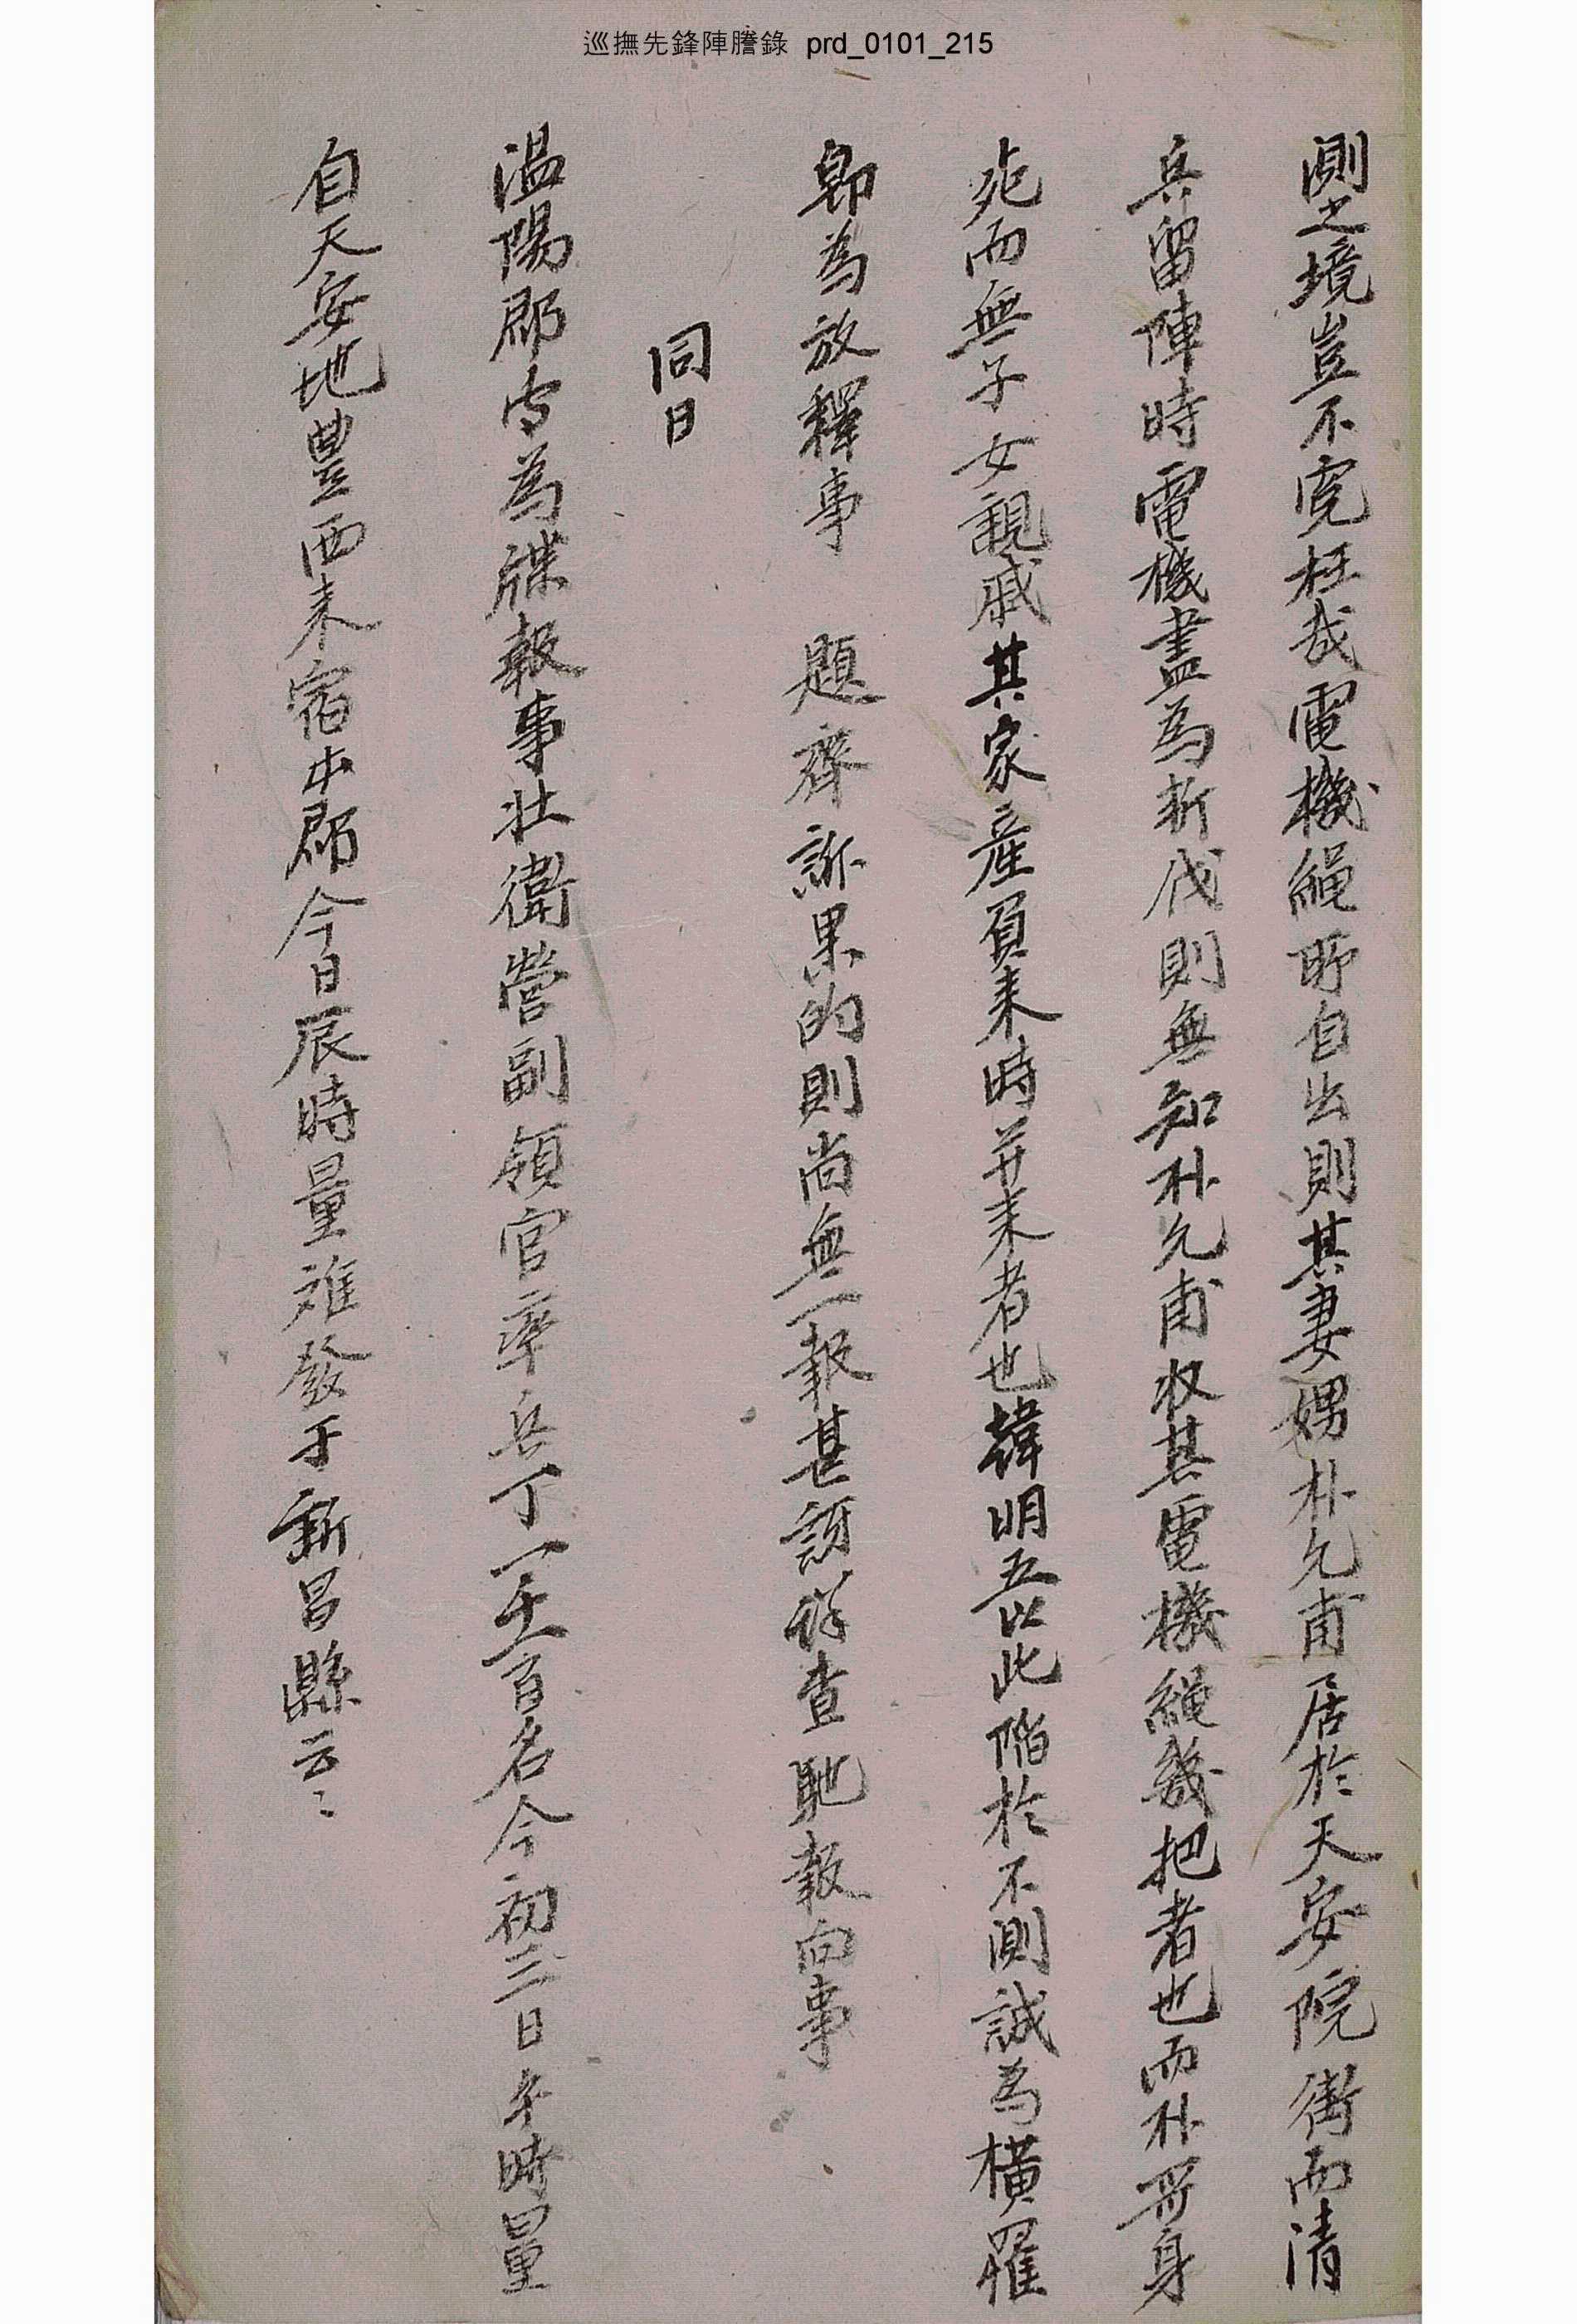 巡撫先鋒陣謄錄 prd_0101_215
測之境豈不寃枉哉電機繩所自出則其妻娚朴允甫居於天安院街而清
兵留陣時電機盡爲折伐則無知朴允甫收其電機繩幾把者也而朴哥身
死而無子女親戚其家産負來時并來者也韓明五以此陷於不測誠爲橫罹
卽爲放釋事 題齊訴果的則尚無一報甚訝詳查馳報向事
同日
温陽郡守爲牒報事壯衛營副領官率兵丁一千一百名今初三日午時量
自天安地豊西來宿本郡今日辰時量離發于新昌縣云云